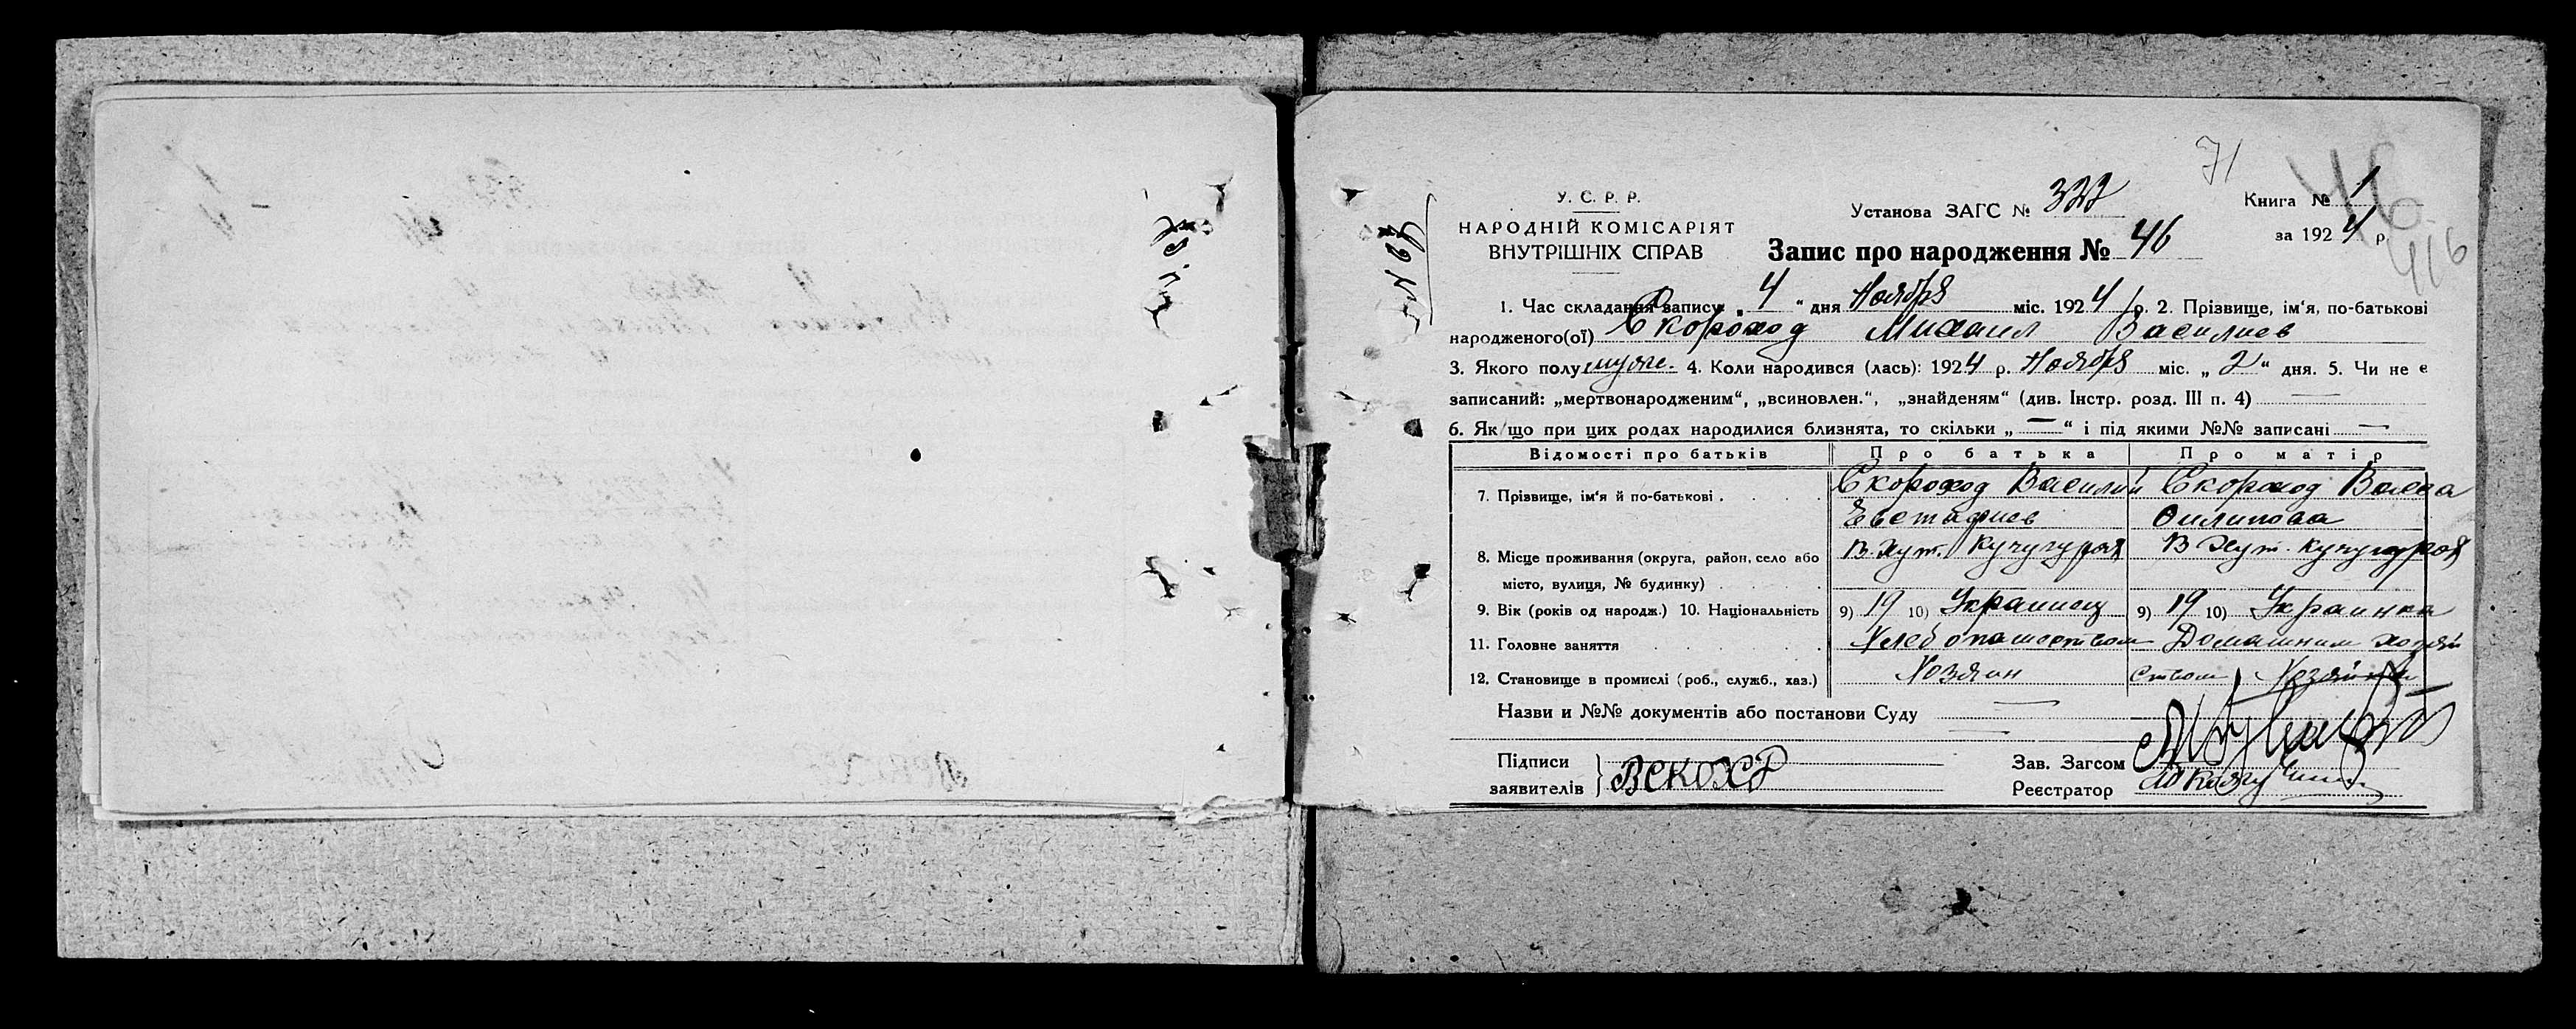 71
У. С. Р. Р.
НАРОДНІЙ КОМІСАРІЯТ
ВНУТРІШНІХ СПРАВ
Установа ЗАГС № 322
Книга № 1
46
за 1924 р.
416
Запис про народження № 46
1. Час складання запису „ 4 “ дня Ноября міс. 1924 р. 2. Прізвище, ім‘я, по-батькові
народженого(ої) Скороход Михаил Василиев
3. Якого полу муже. 4. Коли народився (лась): 1924 р. Ноября міс. „ 2 “ дня. 5. Чи не є
записаний: „мертвонародженим“, „всиновлен.“, „знайденям“ (див. Інстр. розд. III п. 4) —
6. Якщо при цих родах народилися близнята, то скільки „ — “ і під якими №№ записані —
Відомості про батьків Про батька Про матір
7. Прізвище, ім‘я й по-батькові . . . . Скороход Василий Скороход
Евстафиев Филипова
8. Місце проживання (округа, район, село або В. Хут. Кучугурах В Хут. Кучугурах
місто, вулиця, № будинку) . . . .
9. Вік (років од народж.) 10. Національність 9) 19 10) Украинец 9) 19 10) Украинка
11. Головне заняття . . . . . Хлебопашеством Домашним хозяй
12. Становище в промислі (роб., служб., хаз.) Хозяин ством Хозяйка
Назви и №№ документів або постанови Суду —
Підписи
заявителів } ВСКОХД
Зав. Загсом
Реєстратор